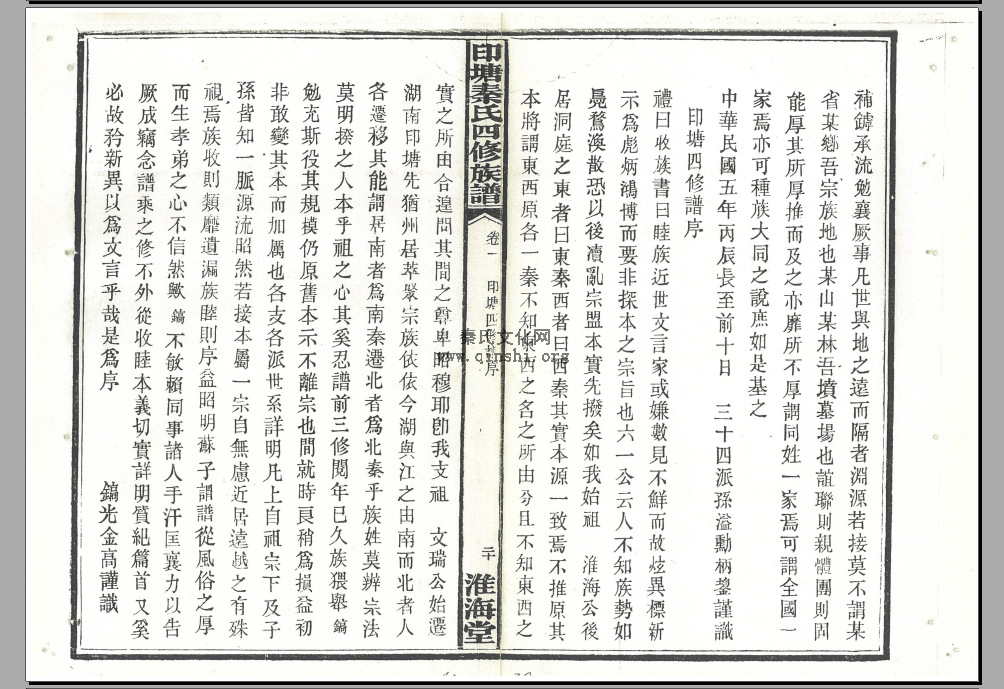 補鏬承流勉襄厥事凡世與地之遠而隔者淵源若接莫不謂某
省某鄉吾宗族地也某山某林吾墳墓場也誼聯則親體團則固
能厚其所厚推而及之亦靡所不厚謂同姓一家焉可謂全國一
家焉亦可種族大同之說庶如是基之
中華民國五年丙辰長至前十日 三十四派孫溢勳柄鋆謹識
印塘四修譜序
禮曰收族書曰睦族近世文言家或嫌數見不鮮而故炫異標新
示爲彪炳鴻博而要非探本之宗旨也六一公云人不知族勢如
鳧鶩渙散恐以後凟亂宗盟本實先撥矣如我始祖 淮海公後
居洞庭之東者曰東秦西者曰西秦其實本源一致焉不推原其
本將謂東西原各一秦不知東西之名之所由分且不知東西之
印塘秦氏四修族譜
卷一
印塘四修譜序
二十
淮海堂
秦氏文化网
www.qinshi.org
實之所由合遑問其間之尊卑昭穆耶卽我支祖 文瑞公始遷
湖南印塘先猶州居萃聚宗族依依今湖與江之由南而北者人
各遷移其能謂居南者爲南秦遷北者爲北秦乎族姓莫辨宗法
莫明揆之人本乎祖之心其奚忍譜前三修閱年已久族猥舉鎬
勉充斯役其規模仍原舊本示不離宗也間就時艮稍爲損益初
非敢變其本而加厲也各支各派世系詳明凡上自祖宗下及子
孫皆知一脈源流昭然若接本屬一宗自無慮近居遠越之有殊
視焉族收則類靡遺漏族睦則序益昭明蘇子謂譜從風俗之厚
而生孝弟之心不信然歟鎬不敏賴同事諸人手汗匡襄力以告
厥成竊念譜乘之修不外從收睦本義切實詳明質紕篇首又奚
必故矜新異以爲文言乎哉是爲序
鎬光金高謹識